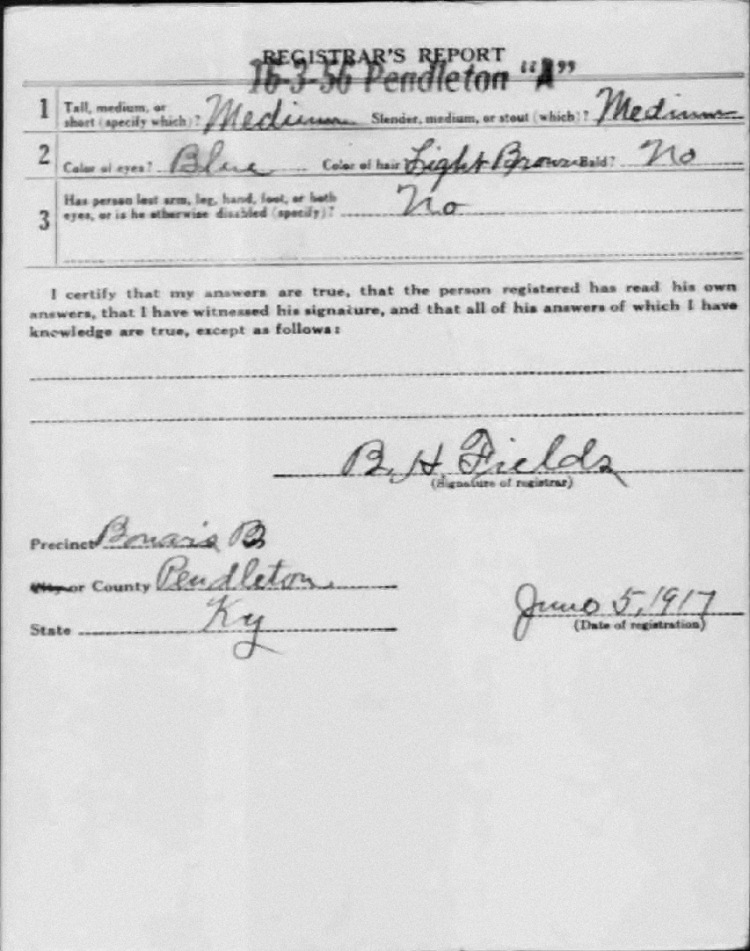 REGISTRAR'S REPORT
16-3-56 Pendleton "A"
1 Tall, medium, or short (specify which)? Medium Slender, medium, or stout (which)? Medium
2 Color of eyes? Blue Color of hair Light Brown Bald? No
3 Has person lost arm, leg, hand, foot, or both eyes, or is he otherwise disabled (specify)? No
I certify that my answers are true, that the person registered has read his own
answers, that I have witnessed his signature, and that all of his answers of which I have
knowledge are true, except as follows:
B. H. Fields
(Signature of registrar)
Precinct B
City or County Pendleton
State Ky
June 5, 1917
(Date of registration)